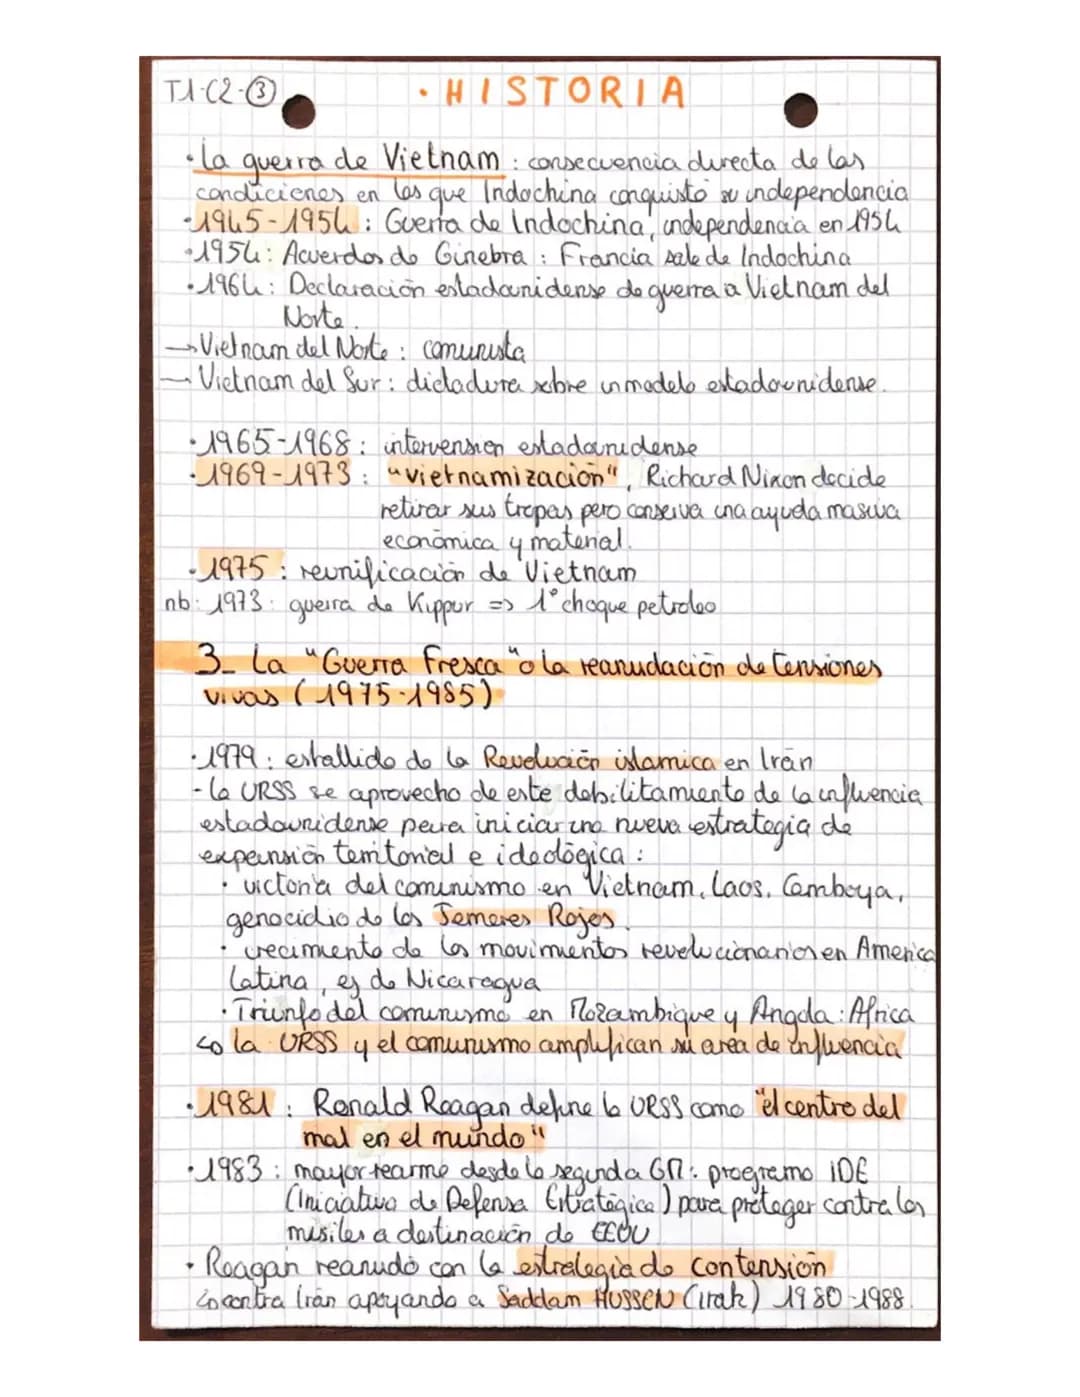 T1-C2-③
· HISTORIA
· La guerra de Vietnam : consecuencia directa de las
condiciones en las que Indochina conquistó su independencia
· 1945-1954 : Guerra de Indochina, independencia en 1954
· 1954 : Acuerdos de Ginebra : Francia sale de Indochina
· 1964 : Declaración estadounidense de guerra a Vietnam del
Norte.
→ Vietnam del Norte : comunista
→ Vietnam del Sur : dictadura sobre un modelo estadounidense.
· 1965-1968 : intervension estadounidense
· 1969-1973 : "vietnamización", Richard Nixon decide
retirar sus tropas pero conserva una ayuda masiva
económica y material.
· 1975 : reunificación de Vietnam
nb : 1973 : guerra de Kippur => 1° choque petroleo
3_ La "Guerra Fresca" o la reanudación de tensiones
vivas (1975-1985)
· 1979 : estallido de la Revolución islamica en Irán
- la URSS se aprovecho de este debilitamiento de la influencia
estadounidense para iniciar una nueva estrategia de
expansión territorial e ideológica :
· victoria del comunismo en Vietnam, Laos, Camboya,
genocidio de los Jemeres Rojos.
· crecimiento de los movimientos revolucionarios en America
Latina, ej de Nicaragua
· Triunfo del comunismo en Mozambique y Angola : Africa
↳ la URSS y el comunismo amplifican su area de influencia
· 1981 : Ronald Reagan define la URSS como "el centro del
mal en el mundo"
· 1983 : mayor rearme desde la segunda GM : programo IDE
(Iniciativa de Defensa Estratégica) para proteger contra los
misiles a destinación de EEUU
· Reagan reanudó con la estrategia de contension
↳ contra Irán apoyando a Saddam HUSSEN (irak) 1980-1988.